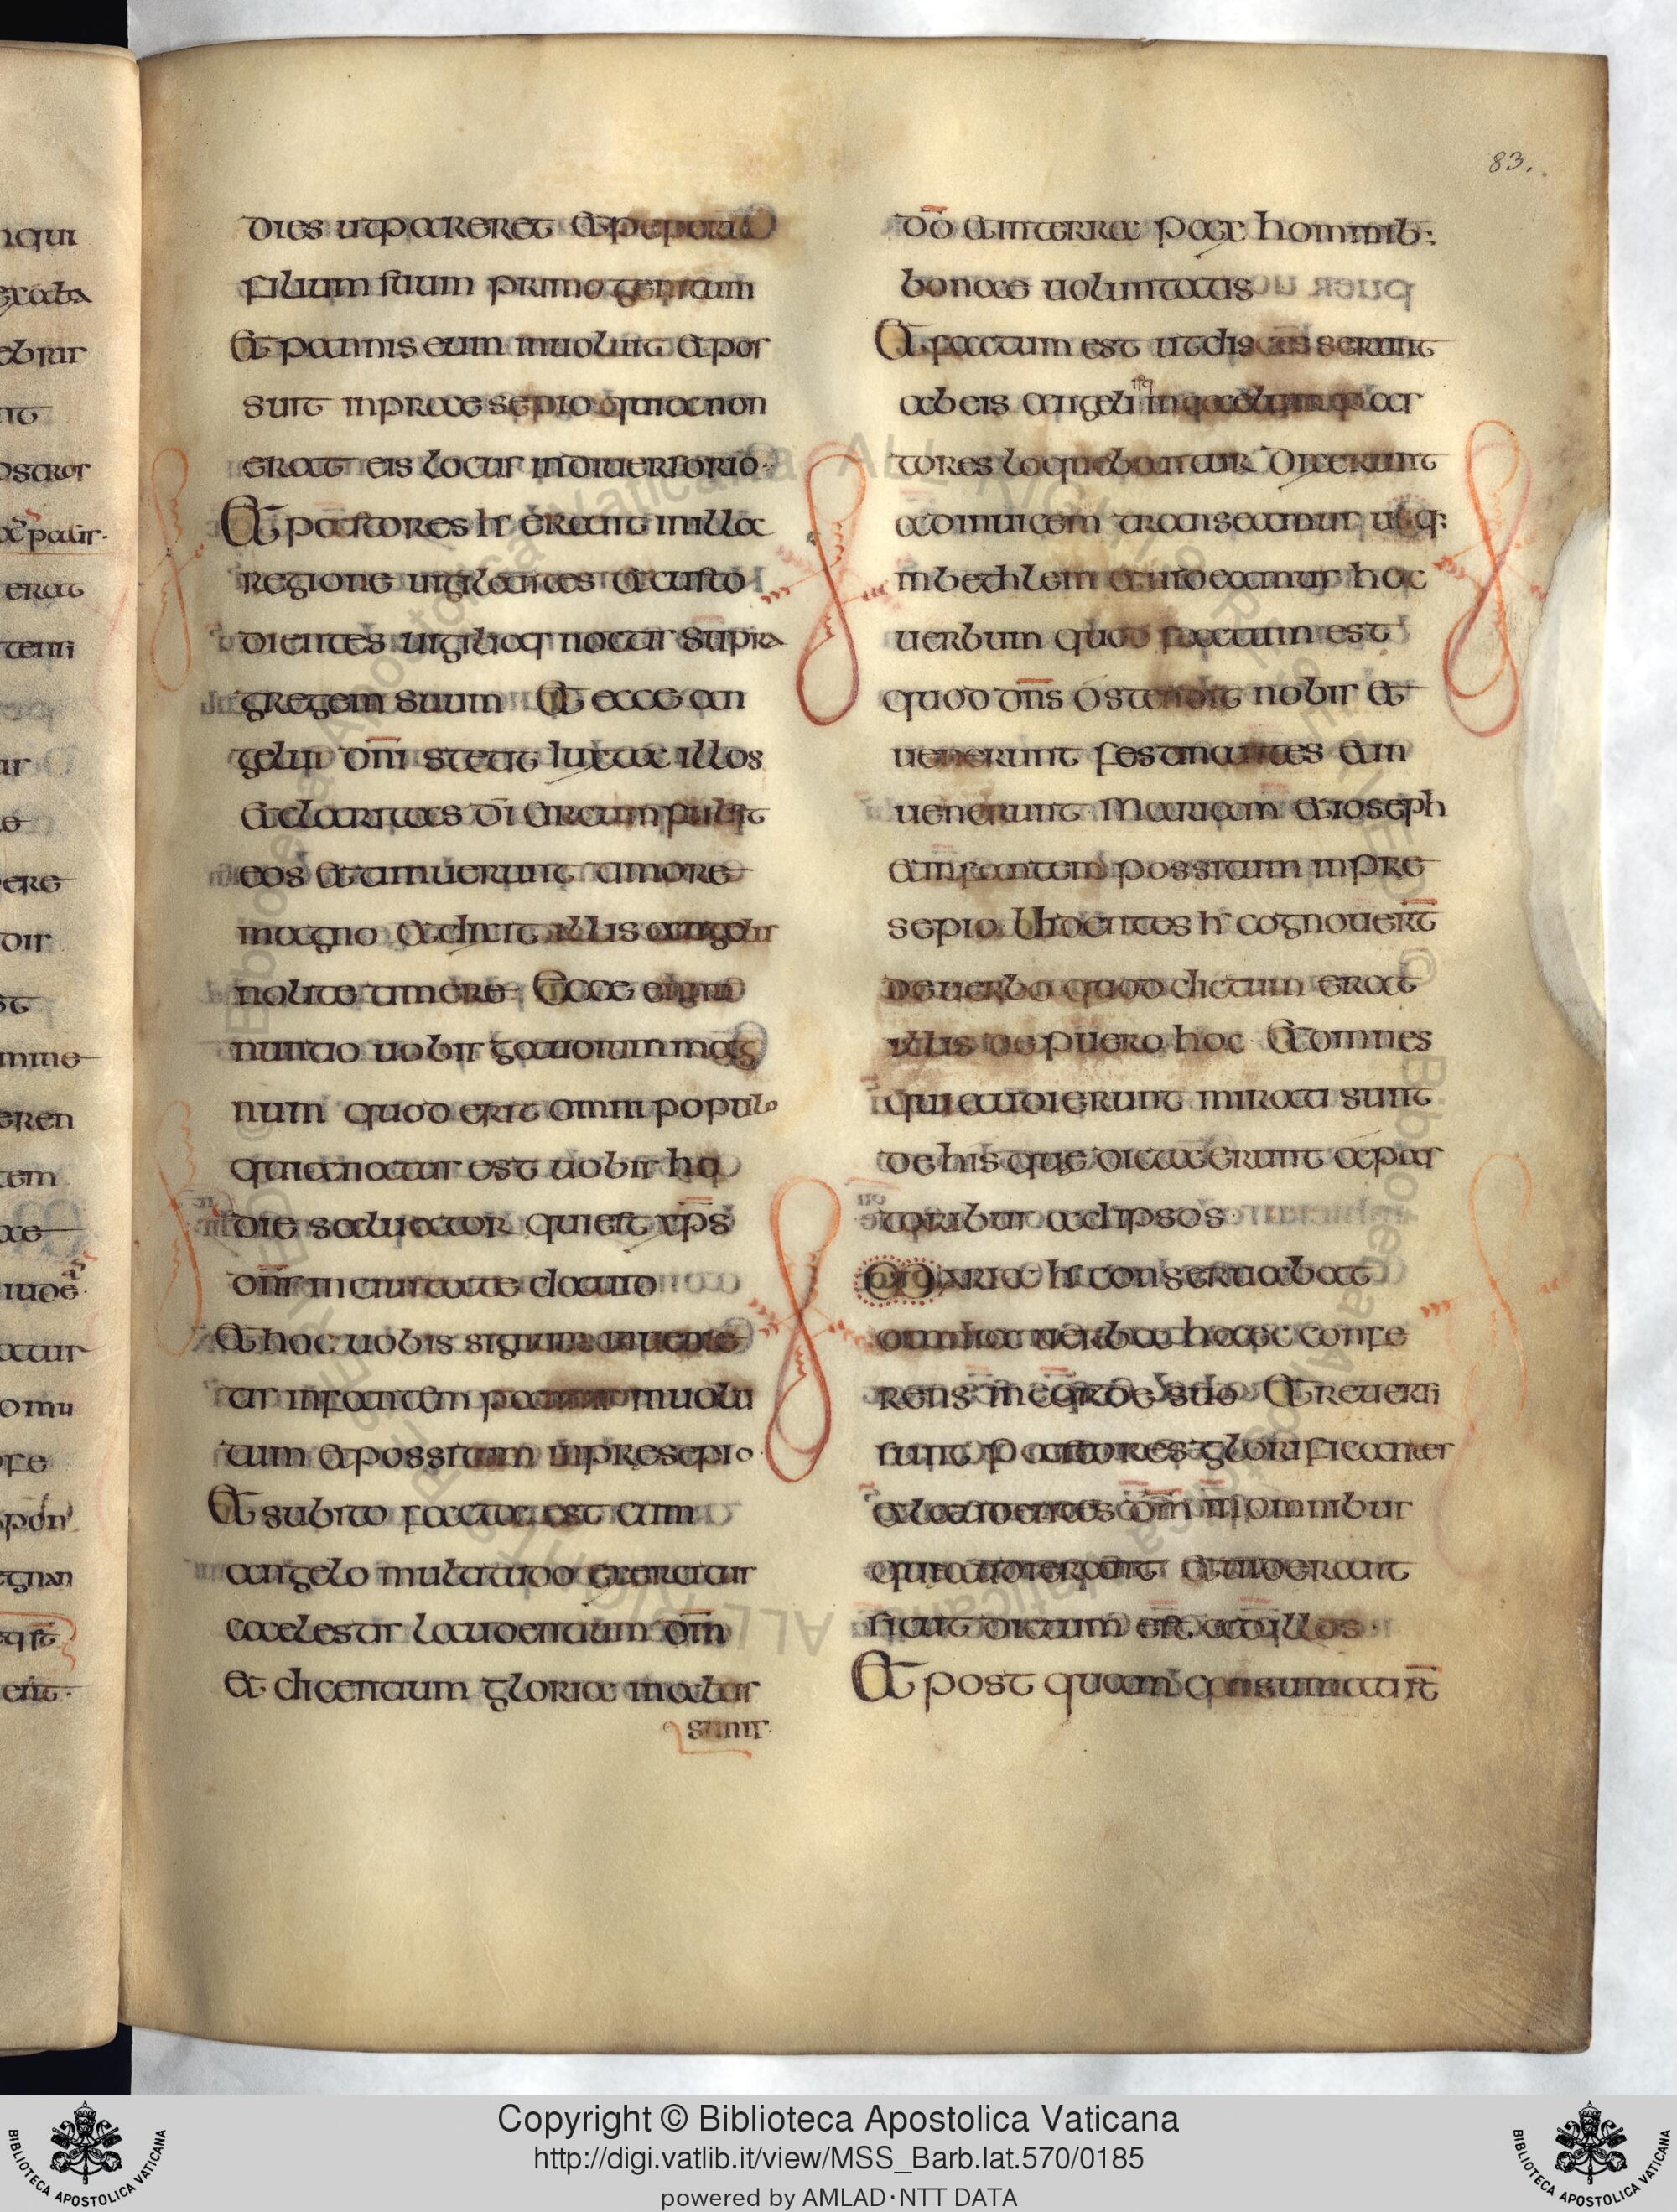 83.
dies ut pareret et peperit
filium suum primogenitum
et pannis eum inuoluit et po
suit in praesepio quia non
erat eis locus in diuersorio
Et pastores hr erant in illa
regione uigilantes et custo
dientes uigilias noctis supra
gregem suum Et ecce an
gelus dni stetit iuxta illos
et claritas di circumfulsit
eos et timuerunt timore
magno et dixit illis angelus
nolite timere Ecce enim
nuntio uobis gaudium mag
num quod erit omni populo
quia natus est uobis ho
die saluator qui est xps
dns in ciuitate dauid
Et hoc uobis signum inuenie
tis infantem pannis inuolu
tum et possitum in presepio
Et subito facta est cum
angelo multitudo exercitus
caelestis laudentium dm
et dicentium gloria in altis
simis
do et in terra pax hominib:
bonae uoluntatis
Et factum est ut discesserunt
ab eis angeli in caelum pas
tores loquebantur dixerunt
ad inuicem transeamus usq:
in bethlem et uideamus hoc
uerbum quod factum est
quod dns ostendit nobis et
uenerunt festinantes et in
uenerunt Mariam et ioseph
et infantem possitum in pre
sepio Uidentes hr cognouert
de uerbo quod dictum erat
illis de puero hoc Et omnes
qui audierunt mirati sunt
de his que dicta erunt a pas
toribus ad ipsos
Maria hr conseruabat
omnia uerba haec confe
rens in corde suo Et reuersi
sunt pastores glorificantes
et laudentes dm in omnibus
que audierant et uiderant
sicut dictum est ad illos
Et post quam consumati st
Copyright © Biblioteca Apostolica Vaticana
http://digi.vatlib.it/view/MSS_Barb.lat.570/0185
powered by AMLAD·NTT DATA
BIBLIOTECA APOSTOLICA VATICANA
BIBLIOTECA APOSTOLICA VATICANA